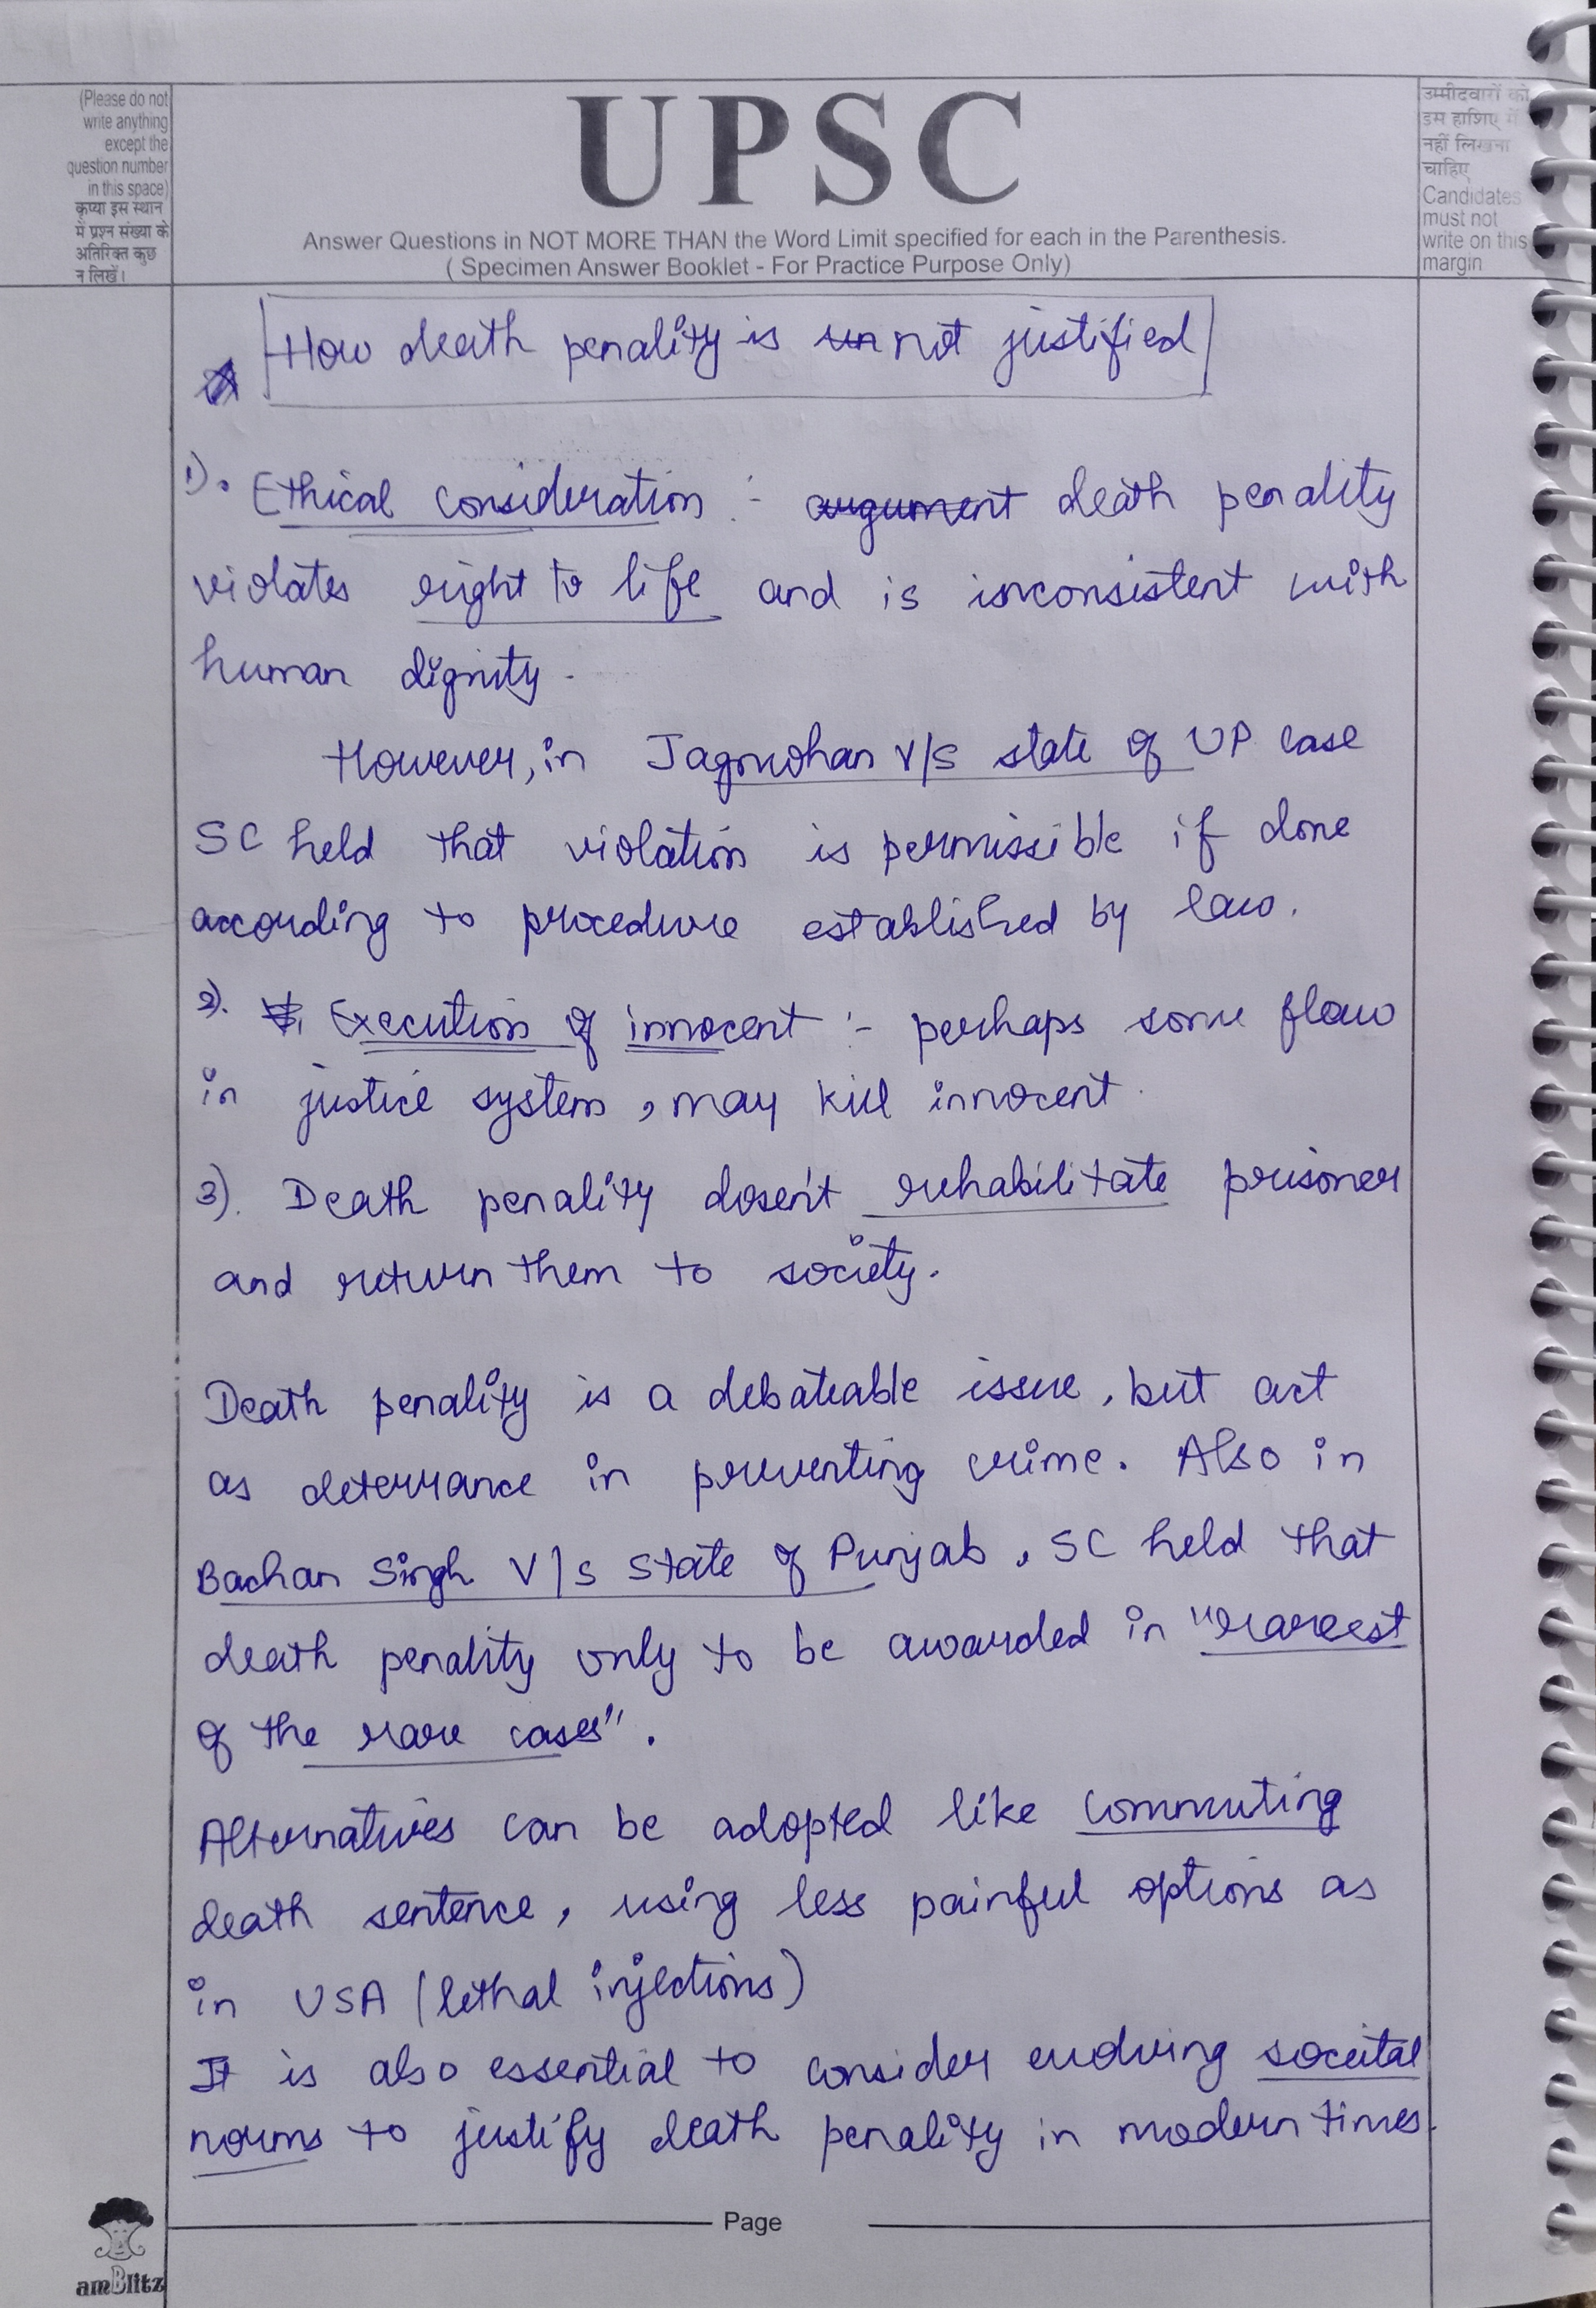 (Please do not
write anything
except the
question number
in this space)
कृप्या इस स्थान
में प्रश्न संख्या के
अतिरिक्त कुछ
न लिखें।
UPSC
Answer Questions in NOT MORE THAN the Word Limit specified for each in the Parenthesis.
( Specimen Answer Booklet - For Practice Purpose Only)
उम्मीदवारों को
इस हाशिए में
नहीं लिखना
चाहिए
Candidates
must not
write on this
margin
How death penality is un not justified
1). Ethical consideration :- argument death penality
violates right to life and is inconsistent with
human dignity.
However, in Jagmohan v/s state of UP case
SC held that violation is permissible if done
according to procedure established by law.
2). Execution of innocent :- perhaps some flaw
in justice system, may kill innocent.
3). Death penality dosen't rehabilitate prisoner
and return them to society.
Death penality is a debateable issue, but act
as deterrance in preventing crime. Also in
Bachan Singh V/s State of Punjab, SC held that
death penality only to be awarded in "rareest
of the rare cases".
Alternatives can be adopted like commuting
death sentence, using less painful options as
in USA (lethal injections)
It is also essential to consider evolving soceital
norms to justify death penality in modern times.
Page
amBlitz